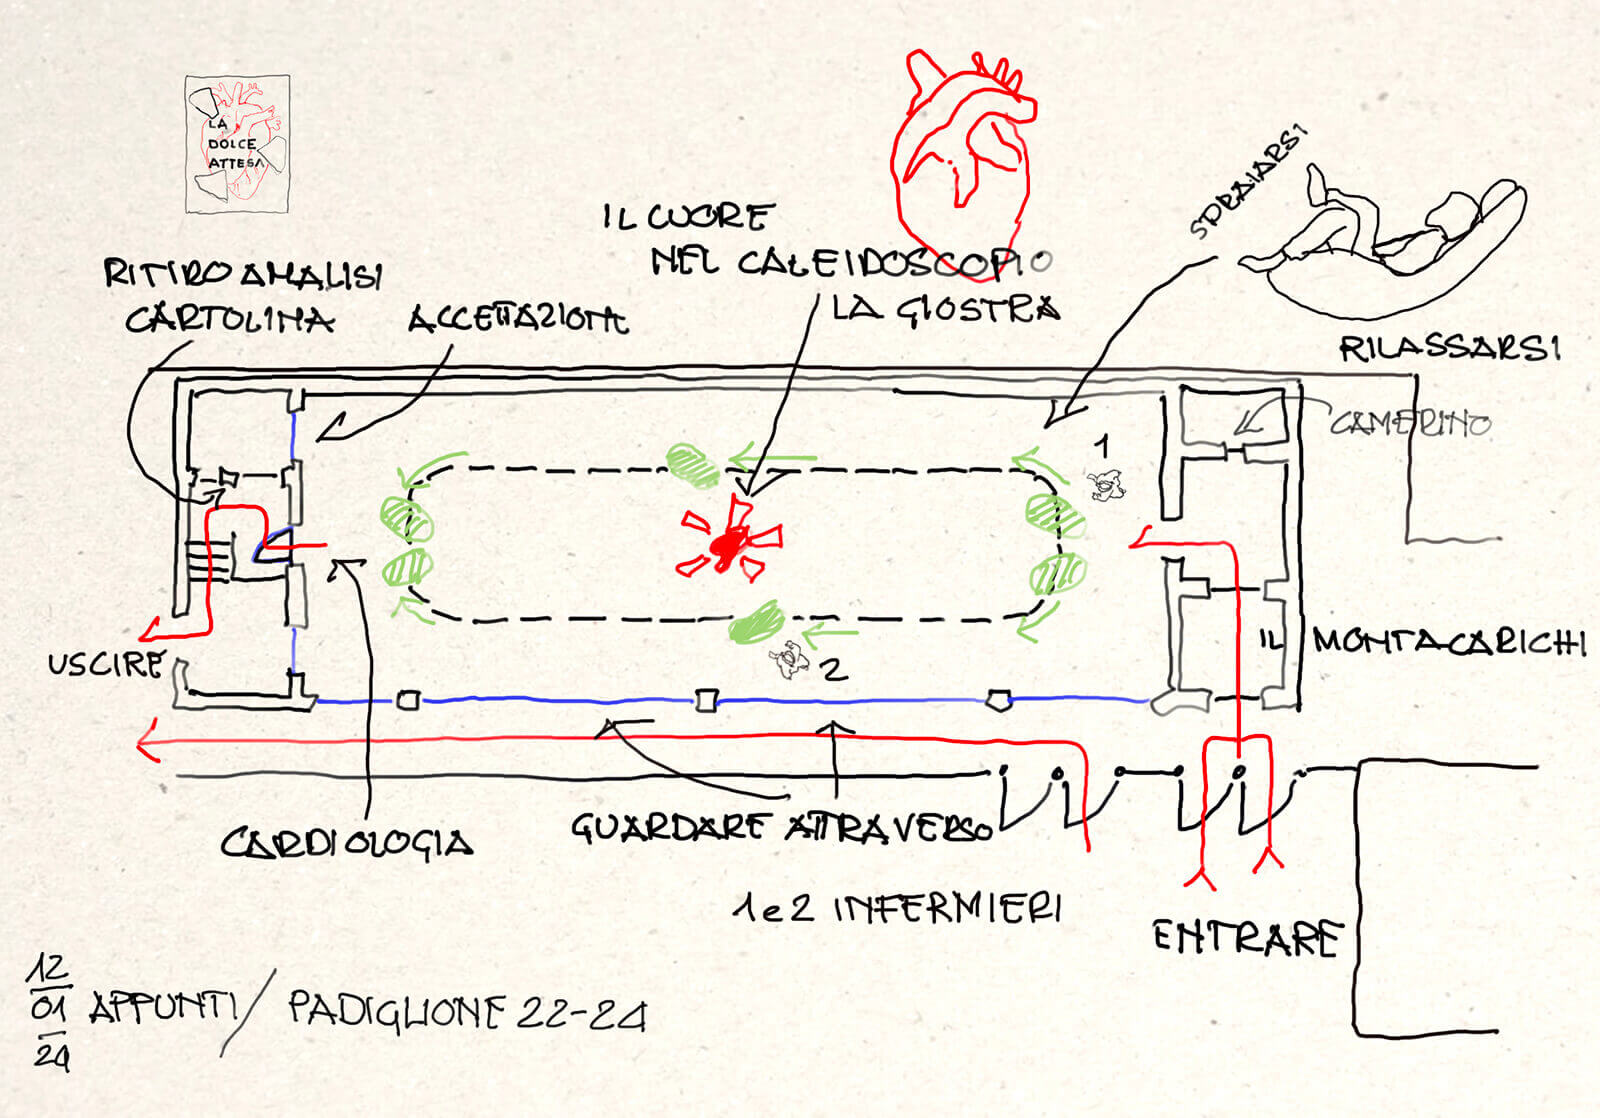 LA
DOLCE
ATTESA
SDRAIARSI
IL CUORE
NEL CALEIDOSCOPIO
LA GIOSTRA
RITIRO ANALISI
CARTOLINA
ACCETTAZIONE
RILASSARSI
CAMERINO
1
IL MONTACARICHI
USCIRE
2
CARDIOLOGIA
GUARDARE ATTRAVERSO
1 e 2 INFERMIERI
ENTRARE
12
01
24
APPUNTI / PADIGLIONE 22-24